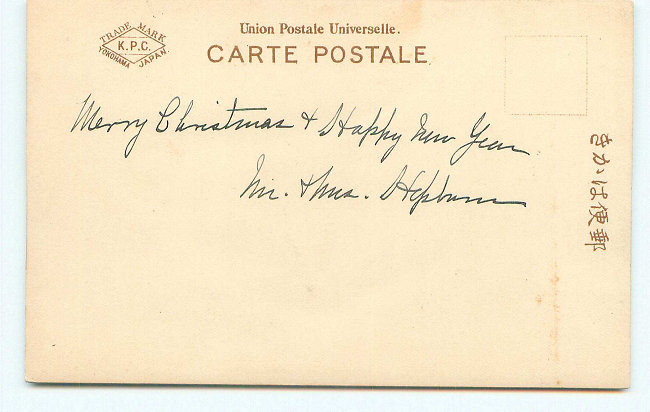 TRADE MARK
K.P.C.
YOKOHAMA JAPAN.
Union Postale Universelle.
CARTE POSTALE
Merry Christmas & Happy New Year
Mr. & Mrs. Hepburn
郵便はがき